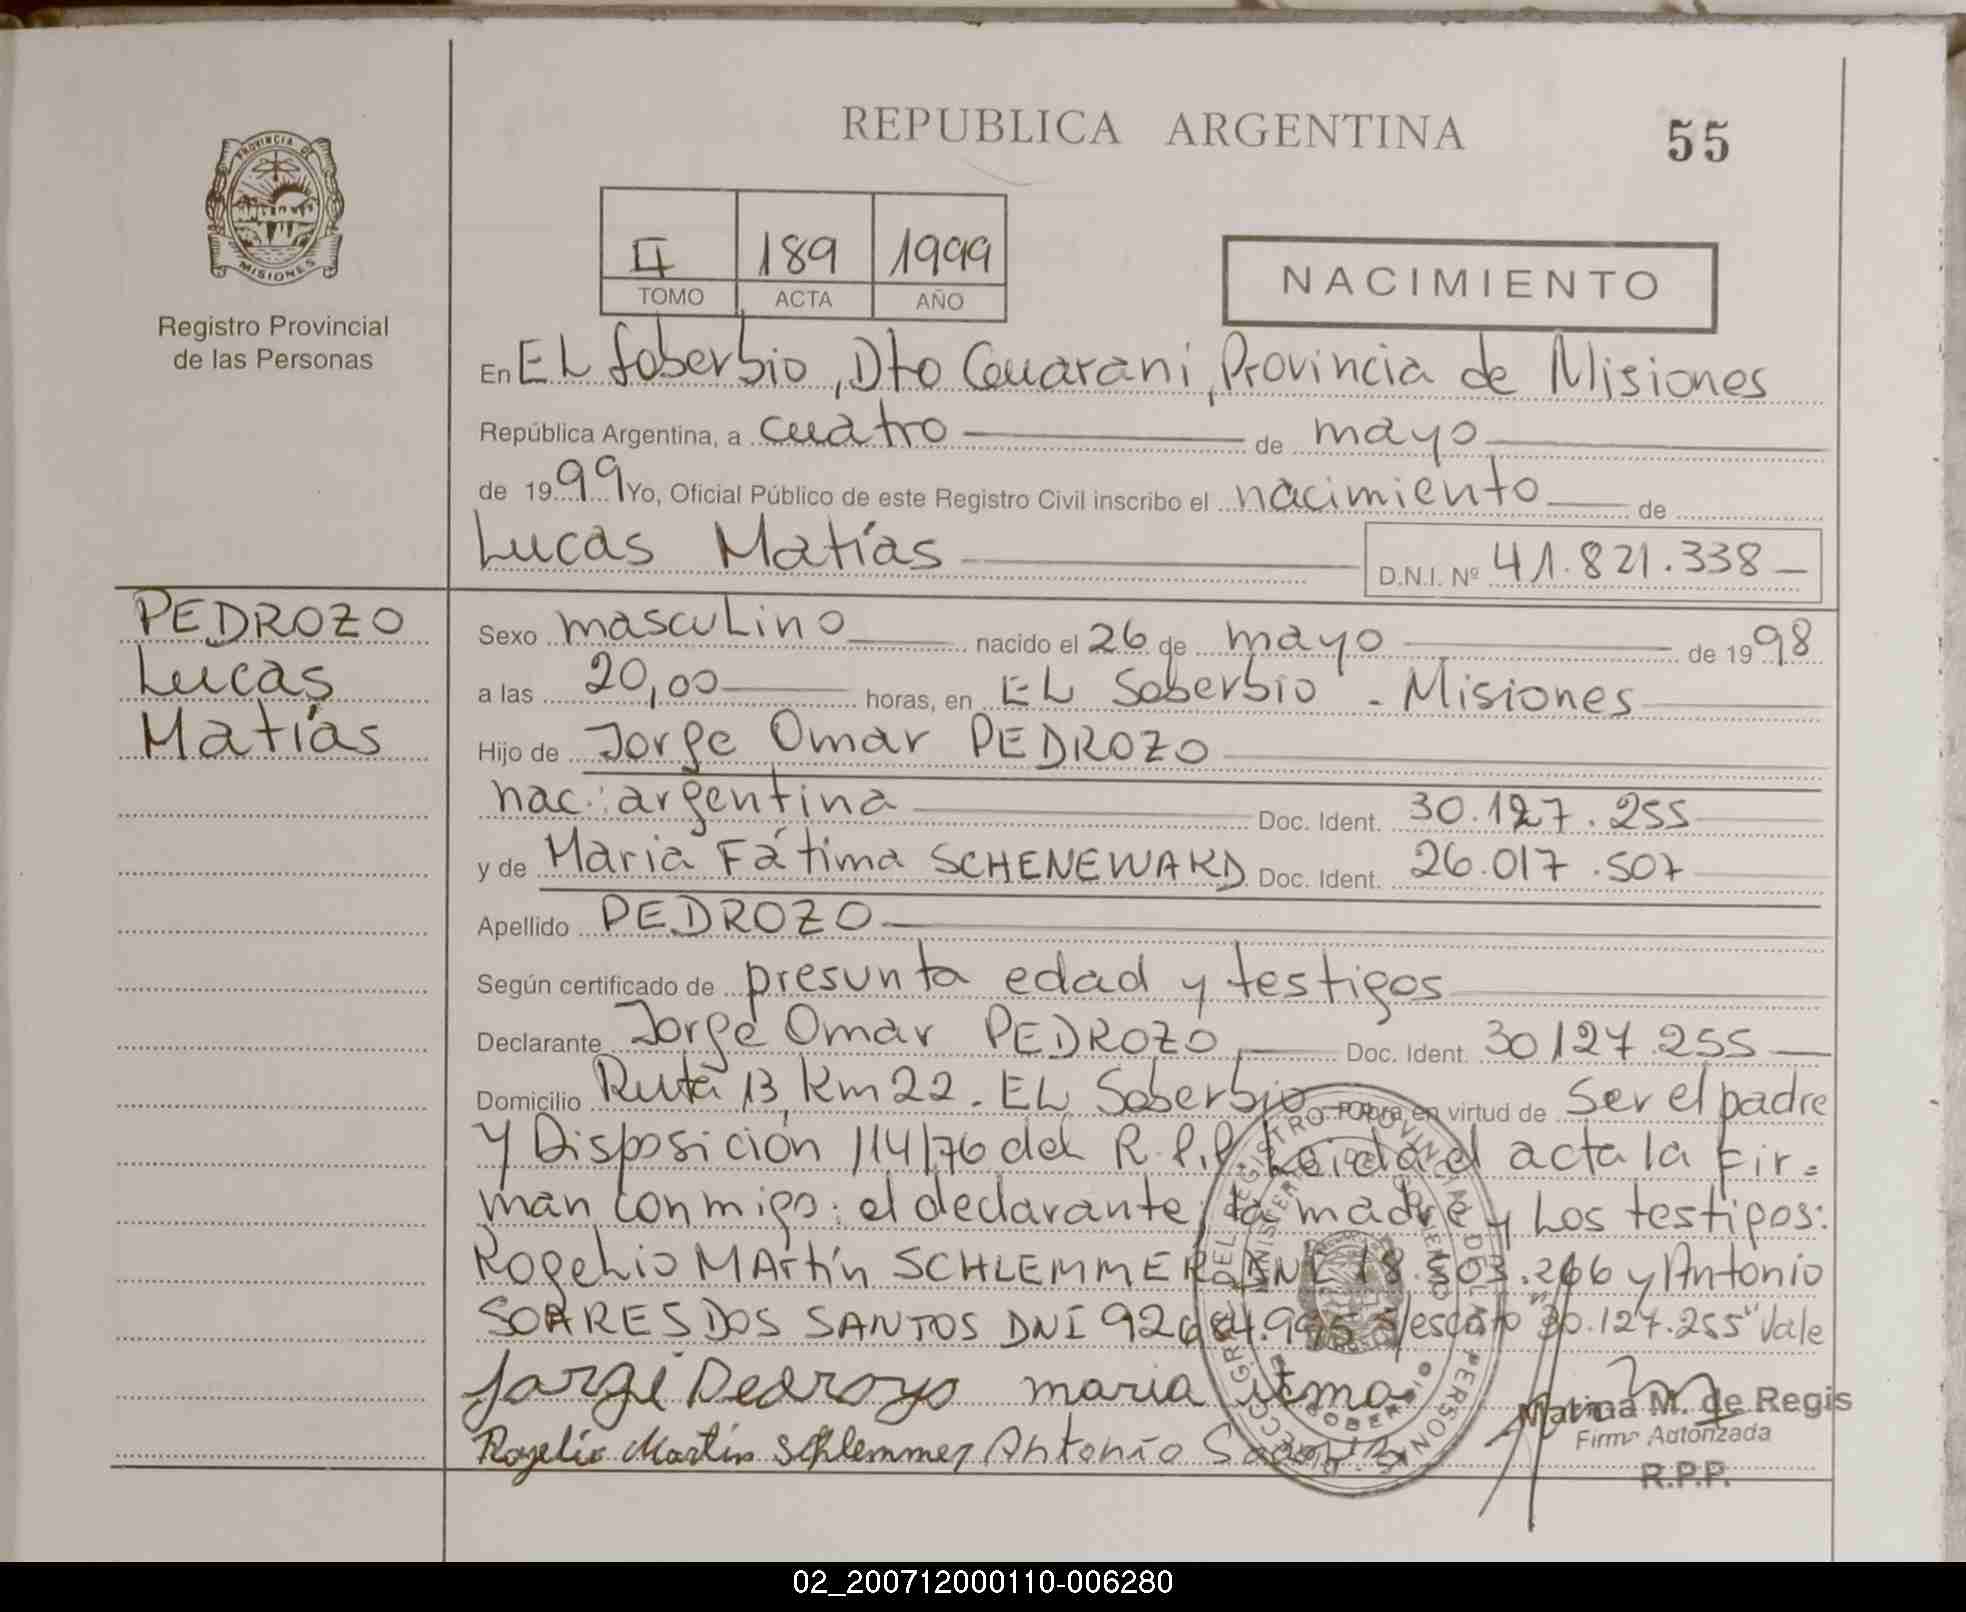 REPUBLICA ARGENTINA
55
PROVINCIA DE
MISIONES
Registro Provincial
de las Personas
II 189 1999
TOMO ACTA AÑO
NACIMIENTO
En EL Soberbio, Dto Guaraní, Provincia de Misiones
República Argentina, a cuatro de mayo
de 1999 Yo, Oficial Público de este Registro Civil inscribo el nacimiento de
Lucas Matías
D.N.I. Nº 41.821.338
PEDROZO
Lucas
Matías
Sexo masculino nacido el 26 de mayo de 1998
a las 20,00 horas, en EL Soberbio - Misiones
Hijo de Jorge Omar PEDROZO
nac: argentina Doc. Ident. 30.127.255
y de Maria Fátima SCHENEWARD Doc. Ident. 26.017.507
Apellido PEDROZO
Según certificado de presunta edad y testigos
Declarante Jorge Omar PEDROZO Doc. Ident. 30127.255
Domicilio Ruta 13, Km 22. EL Soberbio Obra en virtud de Ser el padre
y Disposición 114/76 del R.P.P. Leida el acta la fir=
man conmigo: el declarante, la madre y Los testigos:
Rogelio MArtín SCHLEMMER DNI 18.503.266 y Antonio
SOARES DOS SANTOS DNI 92684.995 "30.127.255" Vale
Jorge Pedrozo maria
Rogelio Martin Schlemmer Antonio
Marina M. de Regis
Firma Autorizada
R.P.P.
02_200712000110-006280